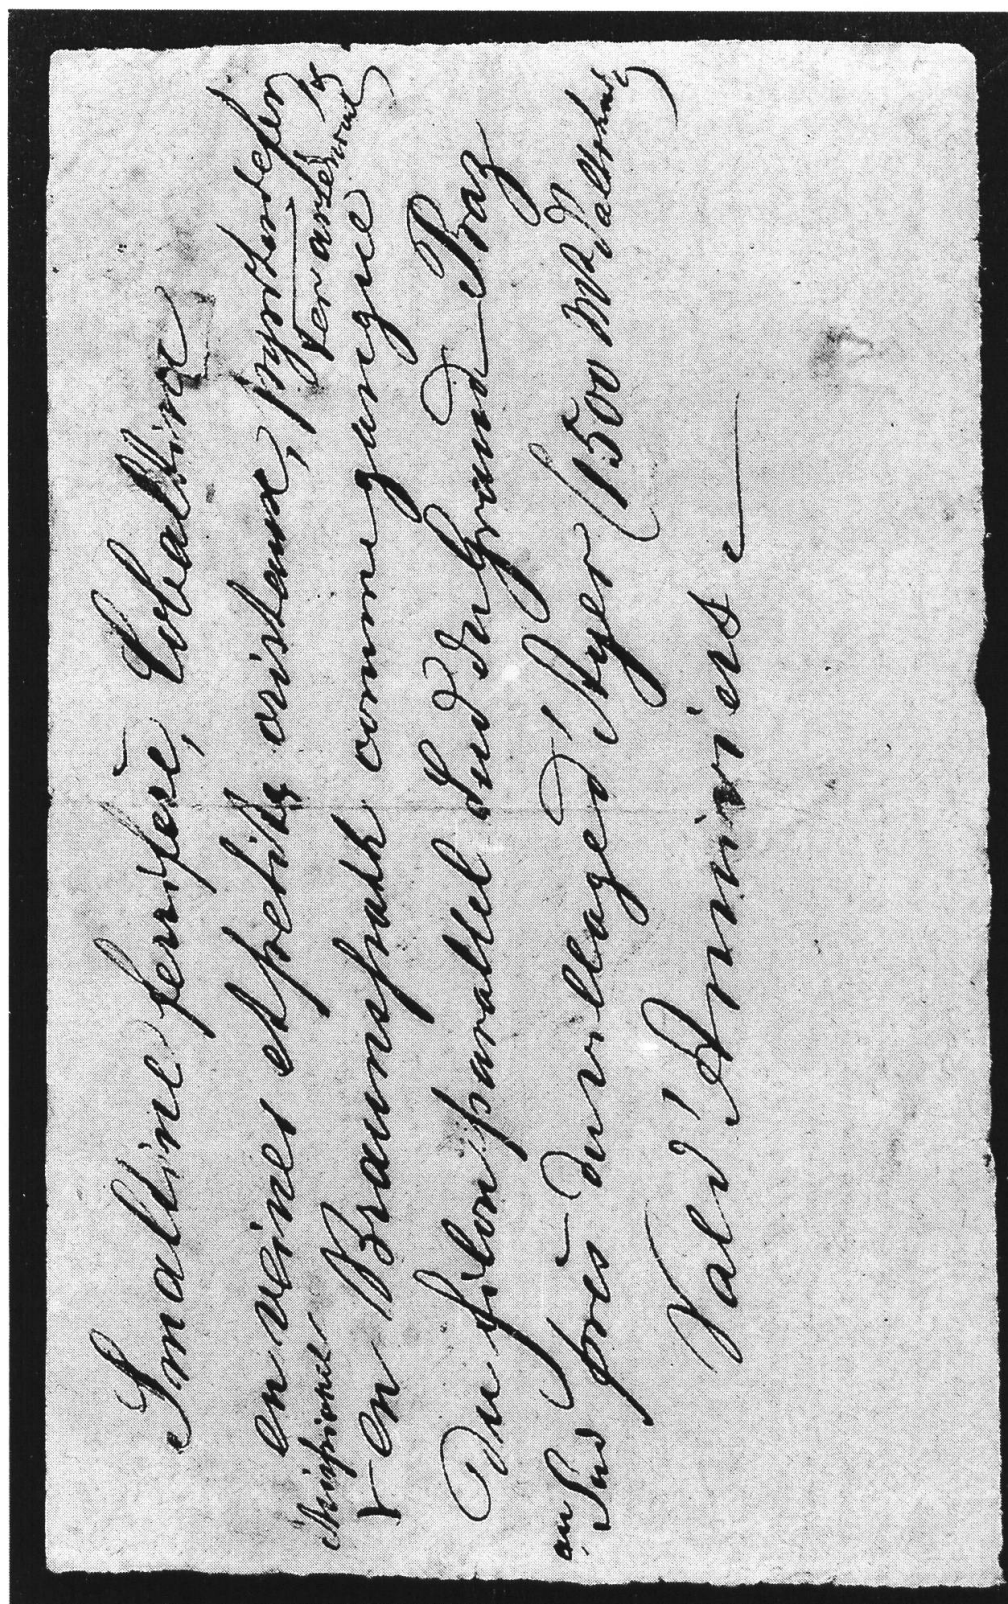 Smaltine ferrifère, Cobaltine
en veines et petits cristaux,
mispickel
en Braunspath comme gangue
Du filon parallel Sud du Grand Praz
au Sud près du village d'Ayer (1500 M
Val d'Anniviers